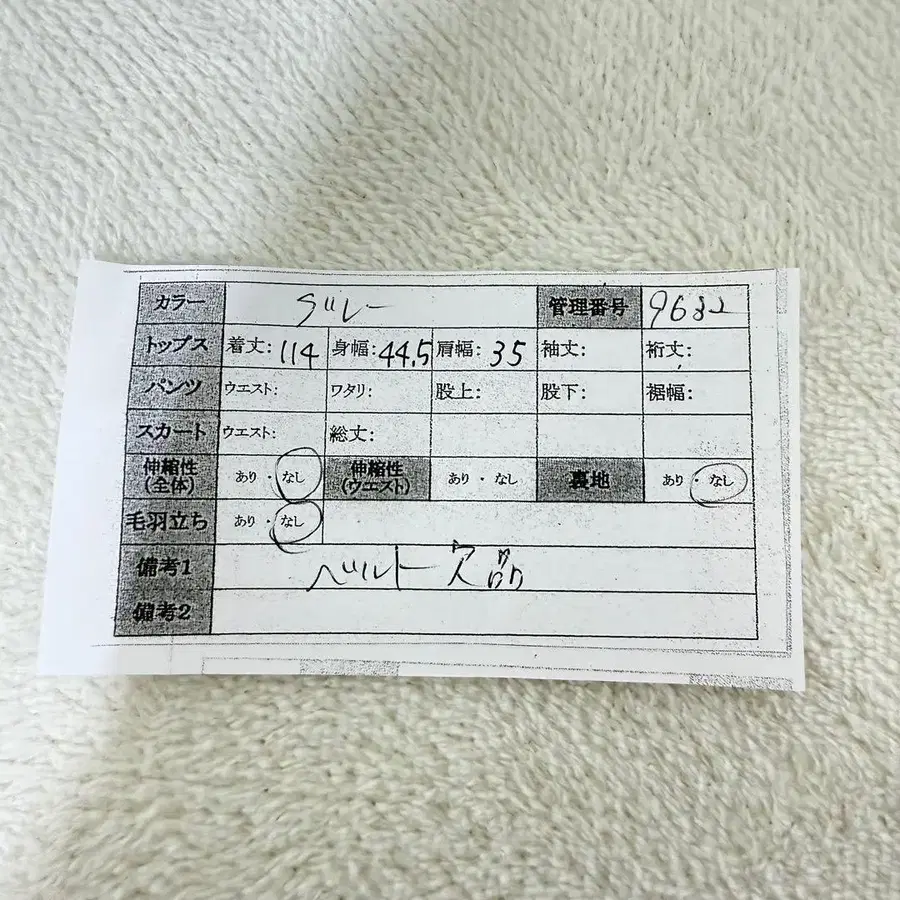 カラー グレー 管理番号 9632
トップス 着丈: 114 身幅: 44.5 肩幅: 35 袖丈: 裄丈:
パンツ ウエスト: ワタリ: 股上: 股下: 裾幅:
スカート ウエスト: 総丈:
伸縮性 (全体) あり ・ なし 伸縮性 (ウエスト) あり ・ なし 裏地 あり ・ なし
毛羽立ち あり ・ なし
備考1 ベルト欠品
備考2